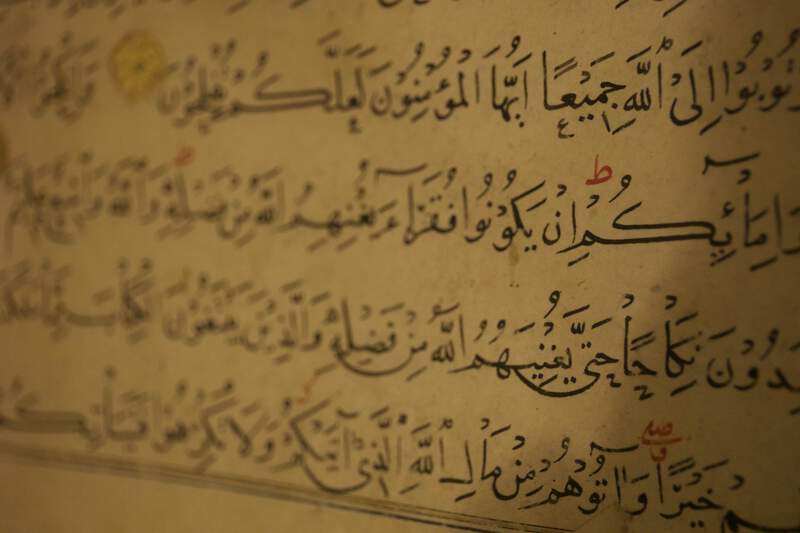 وَتُوبُوا إِلَى اللَّهِ جَمِيعًا أَيُّهَ الْمُؤْمِنُونَ لَعَلَّكُمْ تُفْلِحُونَ وَأَنْكِحُوا
وَإِمَائِكُمْ ط إِنْ يَكُونُوا فُقَرَاءَ يُغْنِهِمُ اللَّهُ مِنْ فَضْلِهِ ط وَاللَّهُ وَاسِعٌ عَلِيمٌ
يَجِدُونَ نِكَاحًا حَتَّى يُغْنِيَهُمُ اللَّهُ مِنْ فَضْلِهِ وَالَّذِينَ يَبْتَغُونَ الْكِتَابَ مِمَّا مَلَكَتْ
خَيْرًا وَآتُوهُمْ مِنْ مَالِ اللَّهِ الَّذِي آتَاكُمْ وَلَا تُكْرِهُوا فَتَيَاتِكُمْ